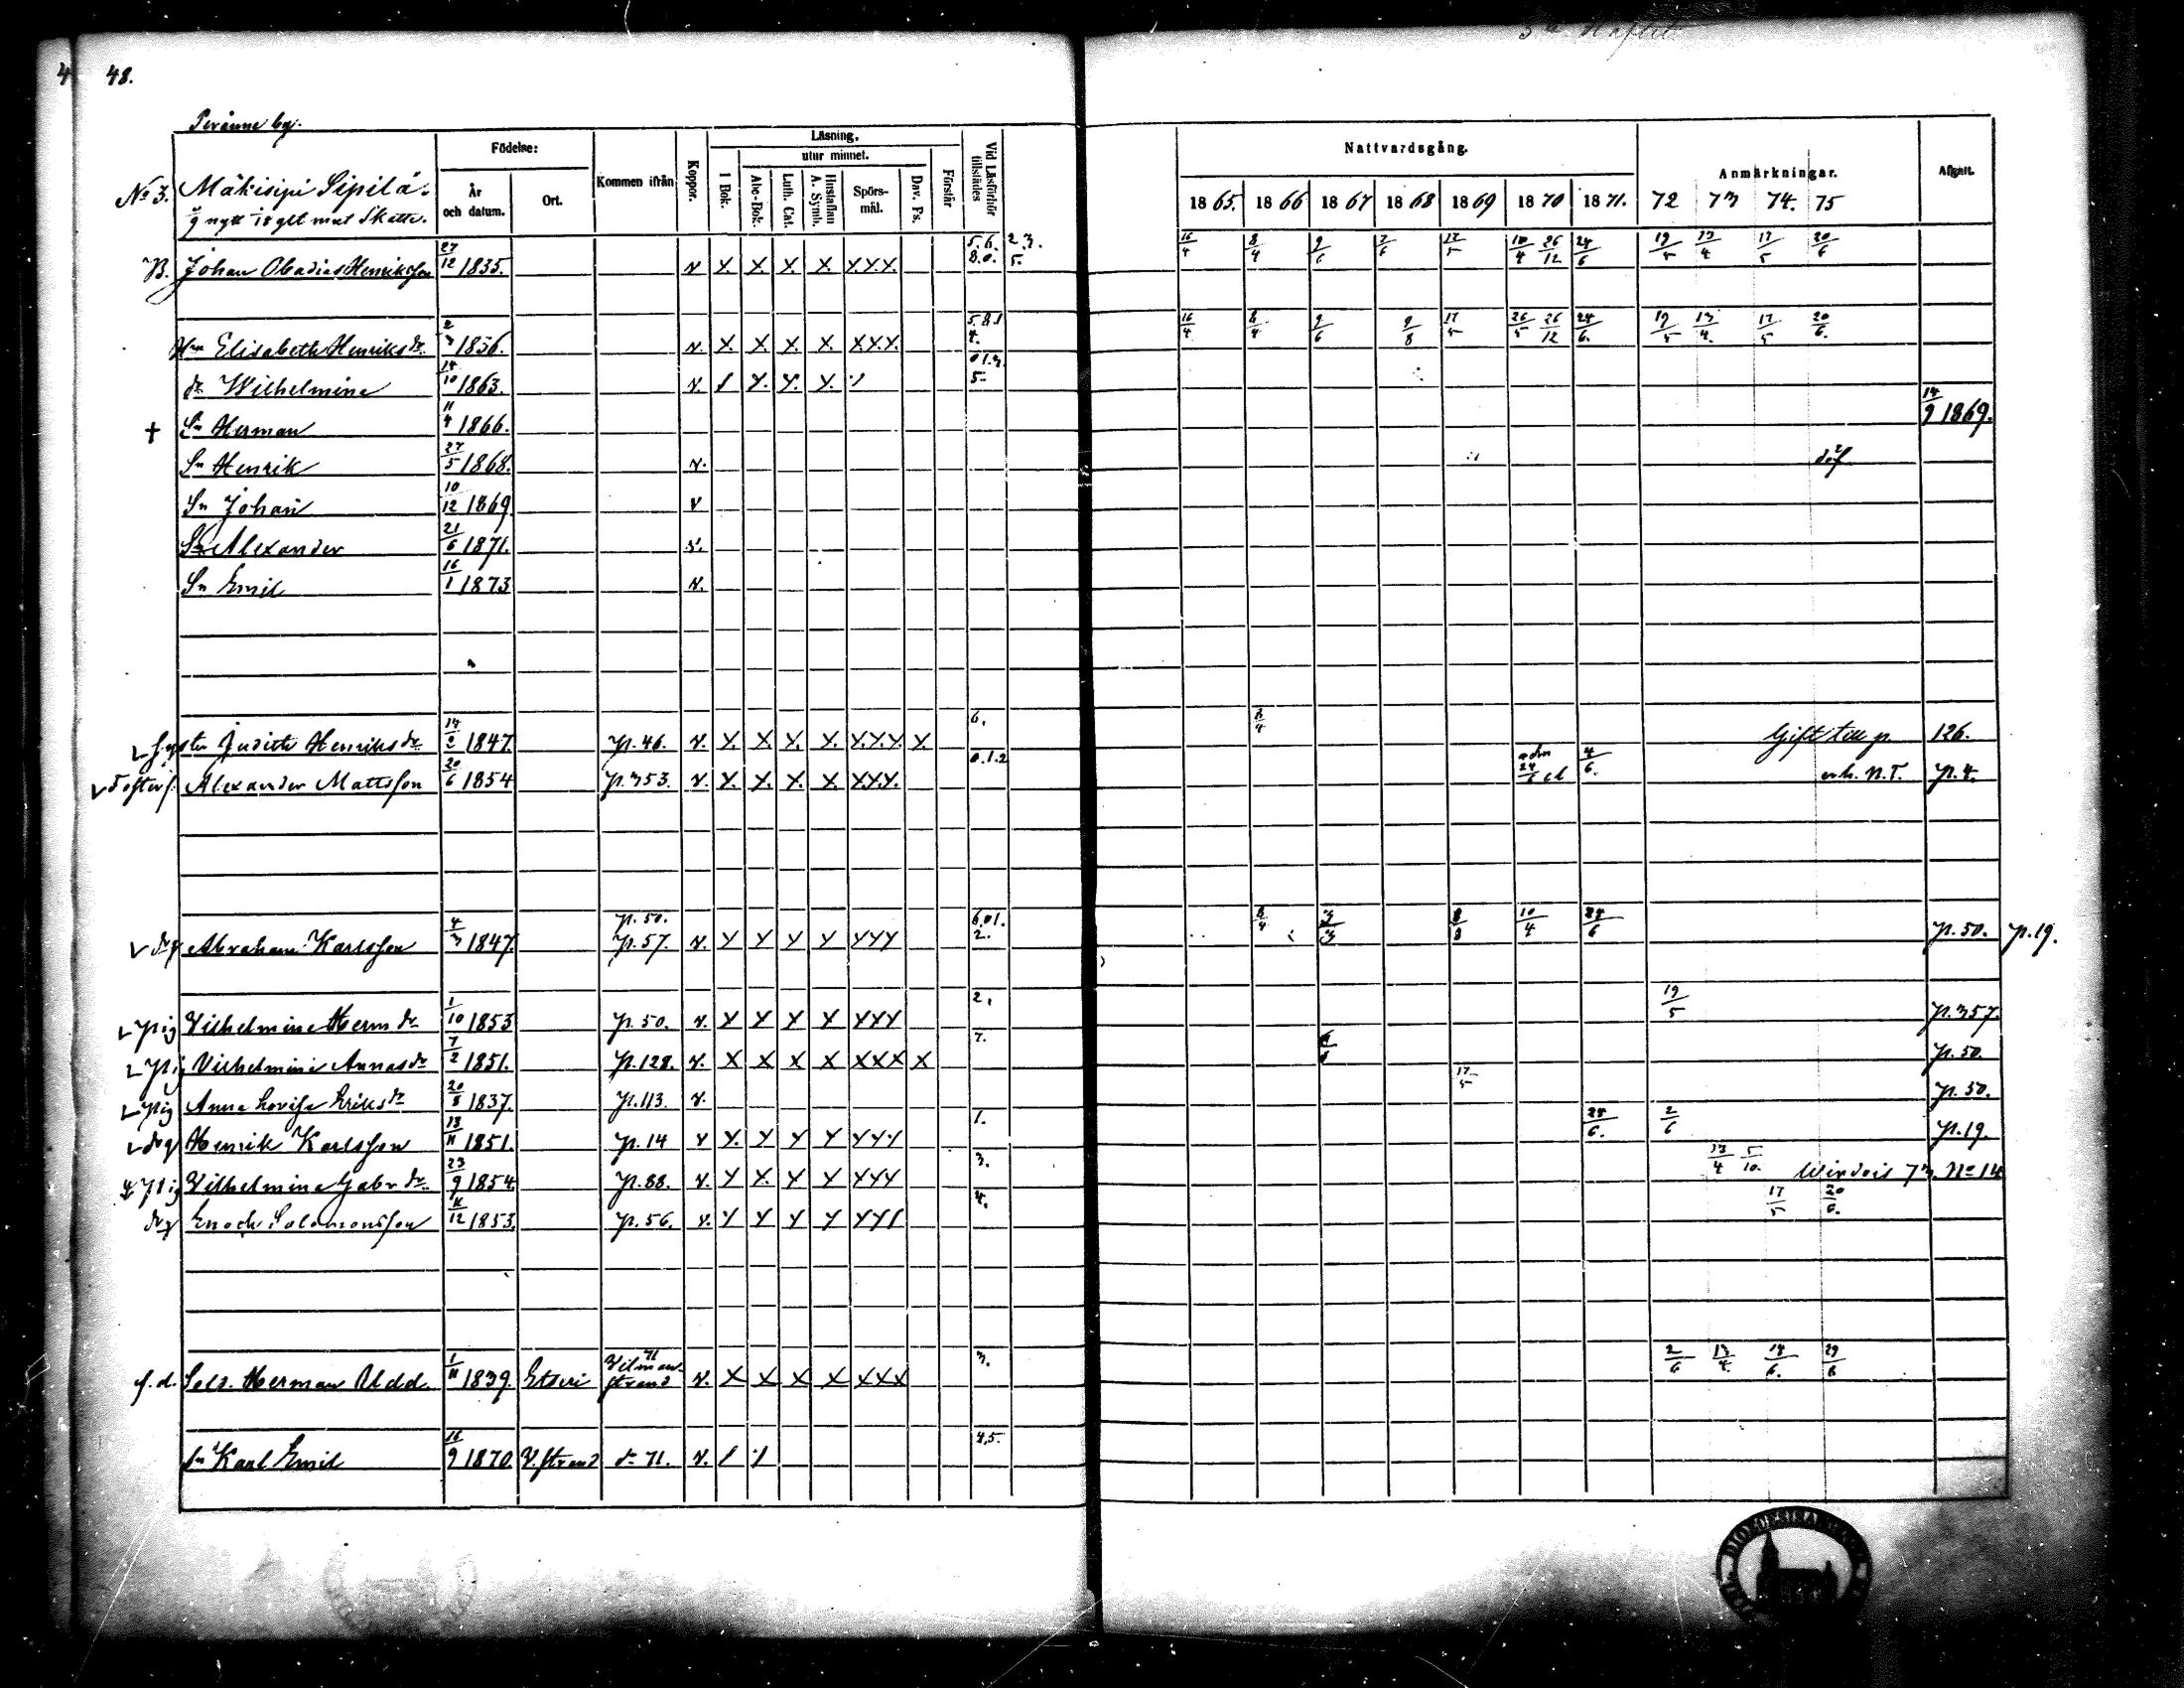 48.
Peränne by.
Födelse:
År och datum.
Ort.
Kommen ifrån
Koppor.
Läsning.
utur minnet.
I Bok.
Abc-Bok.
Luth. Cat.
Hustaflan A. Symb.
Spörsmål.
Dav. Ps.
Förstår
Vid Läsförhör tillstädes
Nattvardsgång.
Anmärkningar.
Afgått.
1865. 1866 1867 1868 1869 1870 1871. 72 73 74. 75
No 3. Mäkisipi Sipilä.
B. Johan Obadias Henriksson 27/12 1835. v X. X. X. X. X.X.X. 5.6. 2.3. 8.0. 5. 16/4 8/4 9/6 7/6 17/5 10/4 26/12 24/6 19/5 13/4 17/5 20/6
Hu Elisabeth Henriksdr. 2/3 1836. v. X. X. X. X. X.X.X. 16/4 8/4 9/6 9/8 17/5 26/5 26/12 24/6. 19/5 13/4. 17/5 20/6.
dr Wilhelmina 1863. v. 5.
† Sn Herman 11/4 1866. 14/9 1869.
Sn Henrik 27/5 1868. v. döf
Sn Johan 10/12 1869 v
Sn Alexander 21/6 1871. v.
Sn Emil 16/1 1873 v.
Syster Judith Henriksdr 14/2 1847. p. 46. v. X. X. X. X. X.X.X. X. 6. 8/4 Gift till p. 126.
Fosters. Alexander Mattsson 20/6 1854 p. 353. v. X. X. X. X. X.X.X. 0.1.2 adm 24/6 4/6. erh. N.T. p. 4.
drg Abraham Karlsson 4/3 1847. p. 50. p. 57. v. X X X X XXX 6.01. 2. 8/4 3/3 8/8 10/4 24/6 p. 50. p. 19.
pig Vilhelmina Hermdr 1/10 1853 p. 50. v. X X X X XXX 2. 19/5 p. 357.
pig Vilhelmina Annasdr 7/2 1851. p. 128. v. X X X X XXX X 7. p. 50.
pig Anna Lovisa Eriksdr 20/8 1837. p. 113. v. 17/5 p. 50.
drg Henrik Karlsson 13/11 1851. p. 14 v X. X X X XXX 1. 24/6. 2/6 p. 19.
pig Vilhelmina Gabrdr. 23/9 1854 p. 88. v. X X. X X XXX 3. 13/4 5/10. Wirdois 73. No 14
drg Enoch Salomonsson 12 1853. p. 56. v. X X X X 4. 17/5 20/6.
f. d. Sold. Herman Udd. 1/11 1839. Etseri 71 Vilmanstrand v. X X X X XXX 3. 2/6 13/4 14/6. 29/6
sn Karl Emil 16/9 1870. V.strand dr 71. v. 4,5.